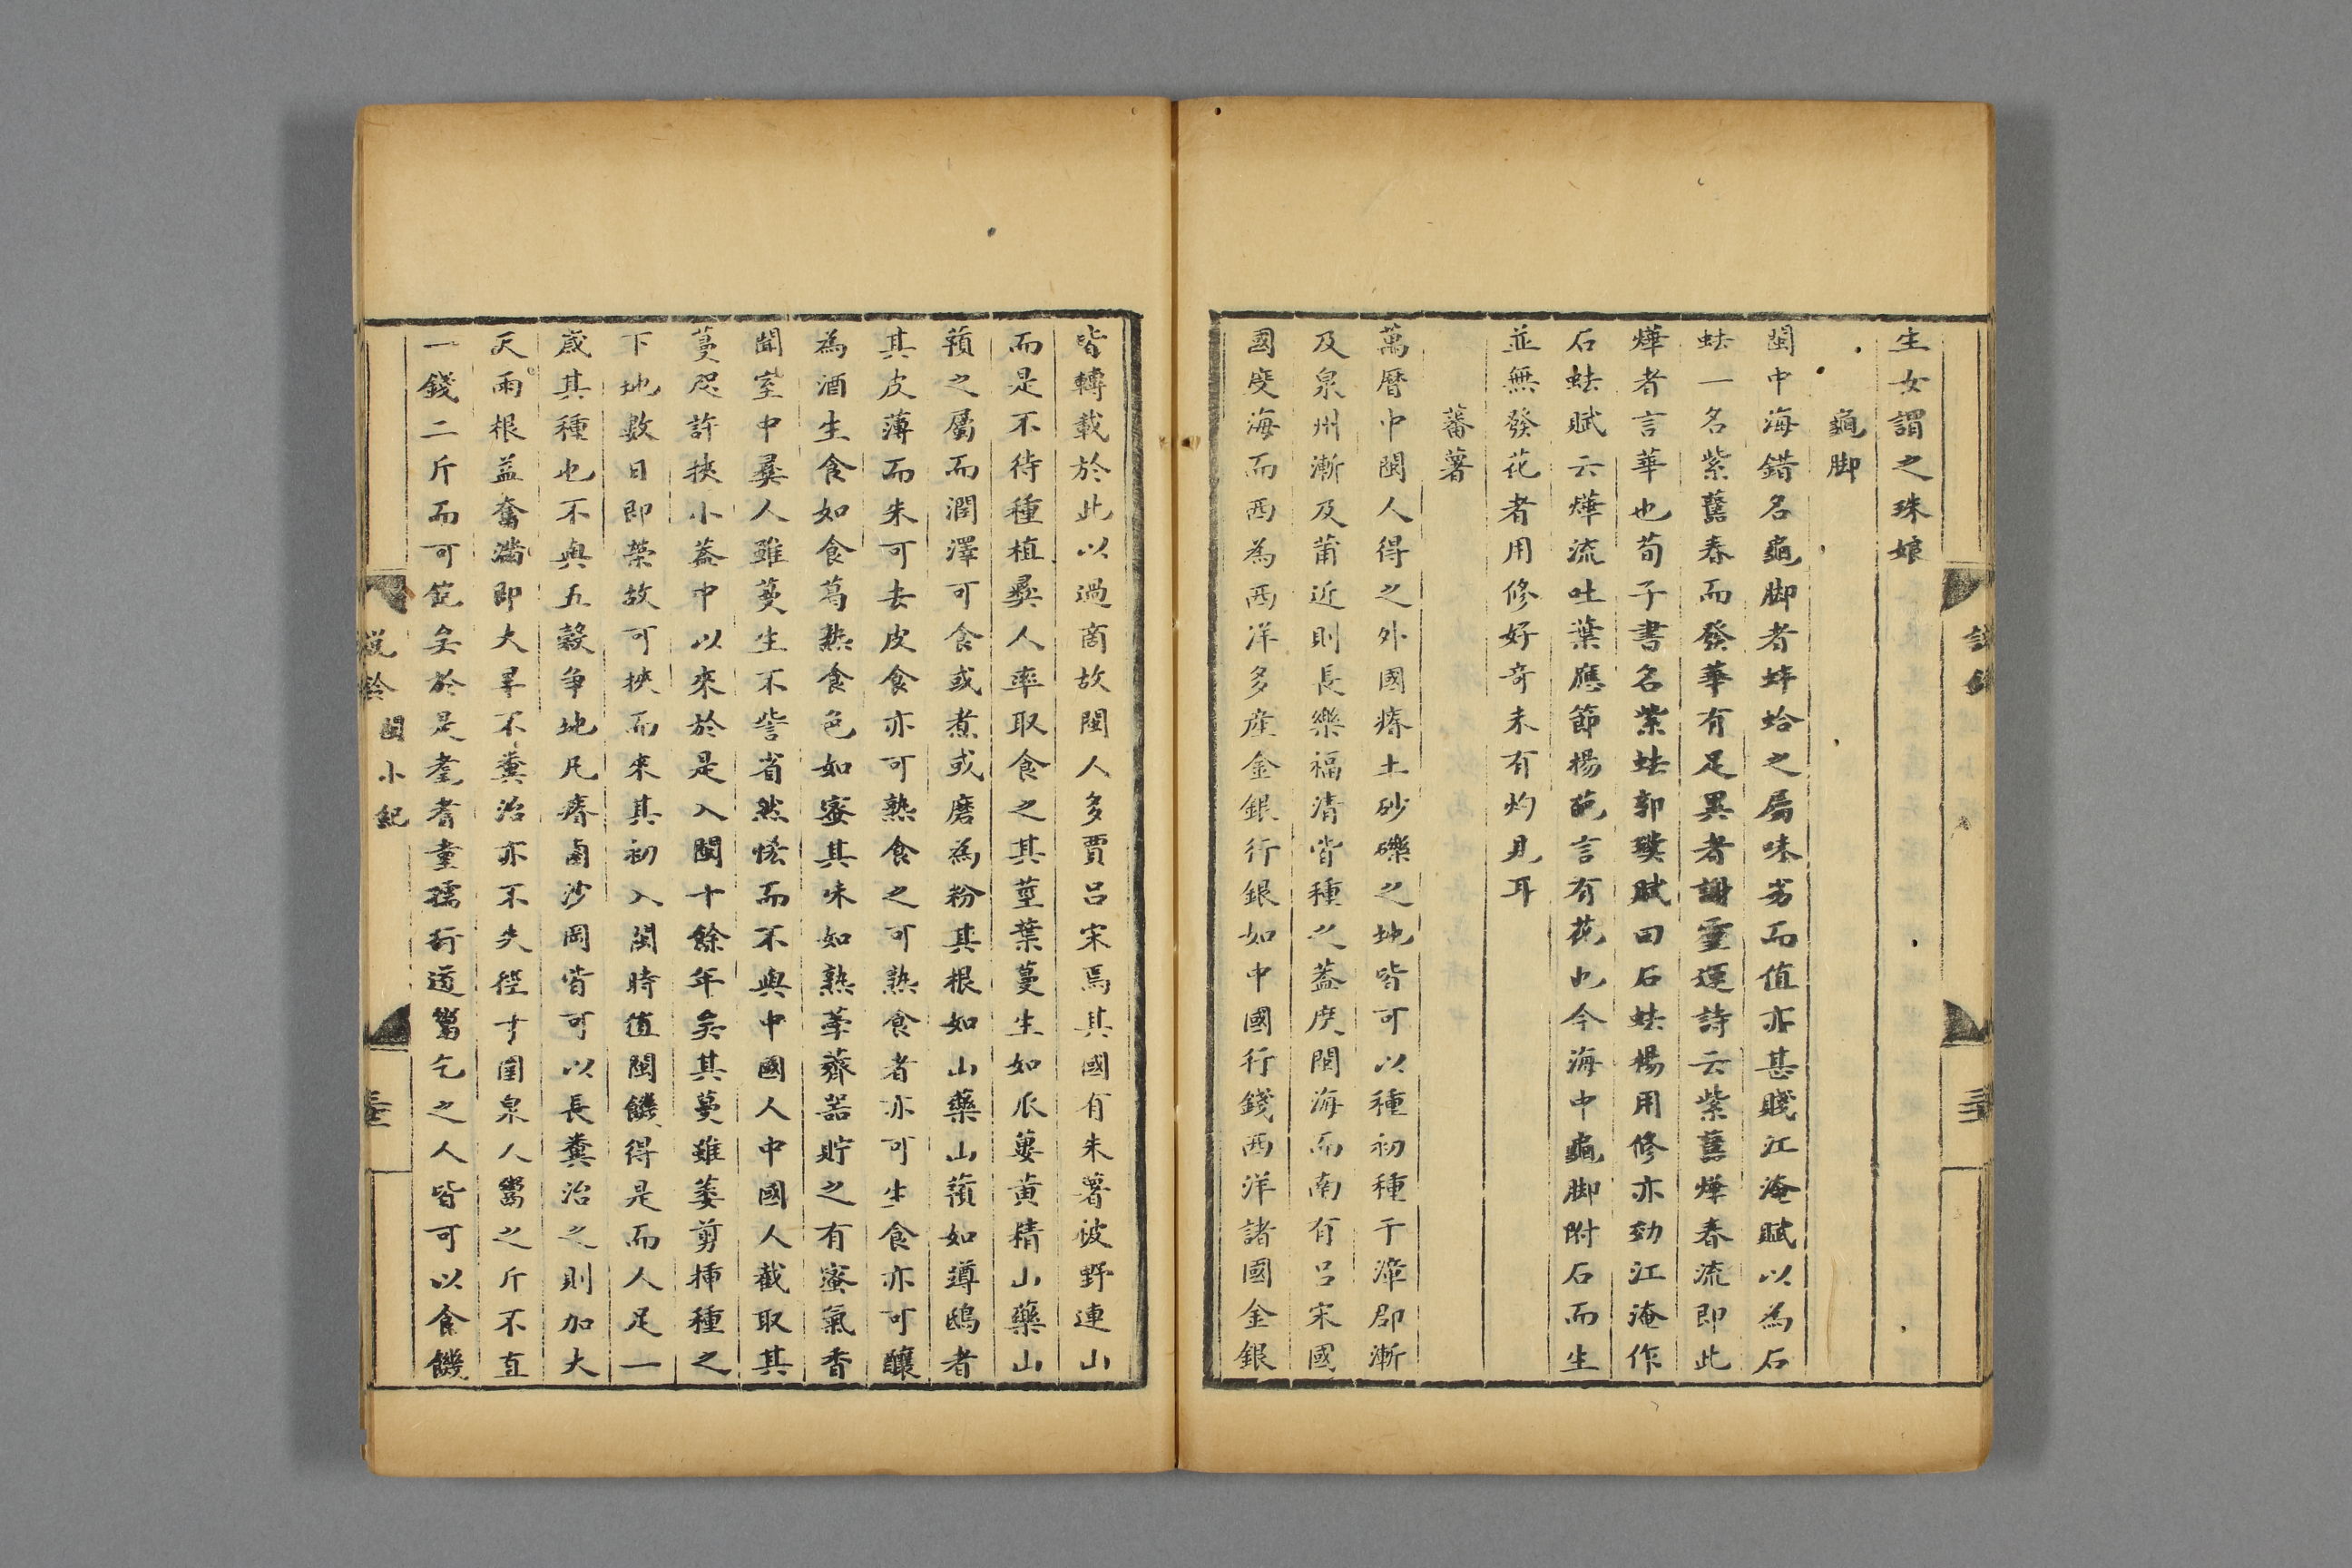 生女謂之珠娘
龜脚
閩中海錯名龜脚者蚌蛤之屬味劣而值亦甚賤江淹賦以為石
蚨一名紫𧄍春而發華有足異者謝靈運詩云紫𧄍燁春流即此
燁者言華也荀子書名紫蚨郭璞賦曰石蚨楊用修亦効江淹作
石蚨賦云燁流吐葉應節揚葩言有花也今海中龜脚附石而生
並無發花者用修好竒未有灼見耳
蕃薯
萬曆中閩人得之外國瘠土砂礫之地皆可以種初種于漳郡漸
及泉州漸及莆近則長樂福清皆種之葢度閩海而南有呂宋國
國度海而西為西洋多産金銀行銀如中國行錢西洋諸國金銀
皆轉載於此以過商故閩人多賈呂宋焉其國有朱薯被野連山
而是不待種植彛人率取食之其莖葉蔓生如瓜蔞黄精山藥山
蕷之屬而潤澤可食或煮或磨為粉其根如山藥山蕷如蹲鴟者
其皮薄而朱可去皮食亦可熟食之可熟食者亦可生食亦可釀
為酒生食如食葛熱食色如蜜其味如熟荸薺噐貯之有蜜氣香
聞室中彛人雖蔓生不訾省然恡而不與中國人中國人截取其
蔓咫許挾小葢中以來於是入閩十餘年矣其蔓雖萎剪揷種之
下地數日即榮故可挾而來其初入閩時值閩饑得是而人足一
歳其種也不與五穀争地凡瘠鹵沙岡皆可以長糞治之則加大
天雨根益奮滿即大旱不糞治亦不失徑寸圍泉人鬻之斤不直
一錢二斤而可飽矣於是耄耆童孺行道鬻乞之人皆可以食饑
說鈴
閩小紀